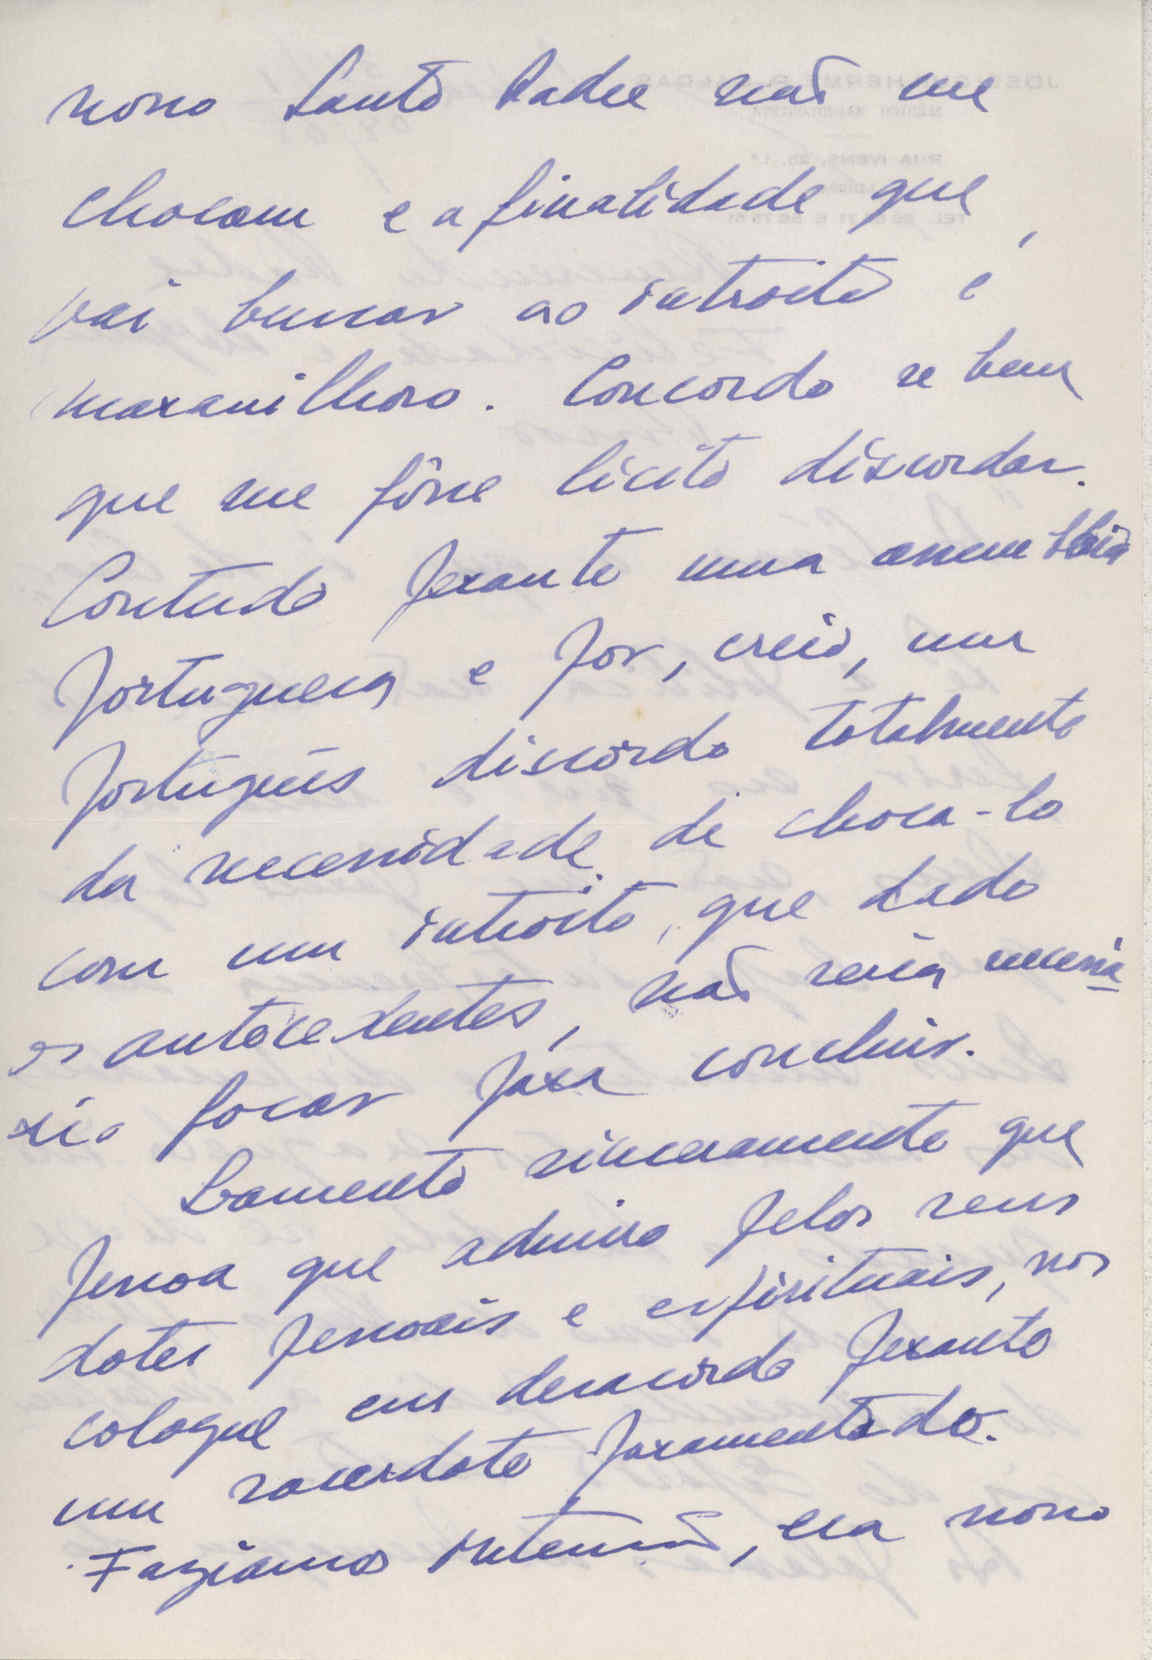 nosso Santo Padre não me
chocam e a finalidade que
vai buscar ao introito é
maravilhoso. Concordo se bem
que me fôsse licito discordar.
Contudo perante uma assembleia
portuguesa e por, creio, um
português discordo totalmente
da necessidade de choca-lo
com um introito, que dado
os antecedentes, não seria necessá
rio focar para concluir.
Lamento sinceramente que
pessoa que admiro pelos seus
dotes pessoais e espirituais, nos
coloque em desacordo perante
um sacerdote paramentado.
Faziamos intensão, era nosso